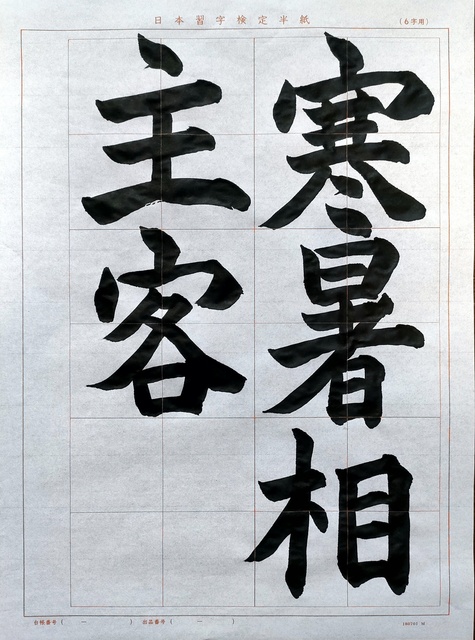 日本習字検定半紙
(6字用)
寒暑相
主客
台帳番号 ( ー ) 出品番号 ( ー )